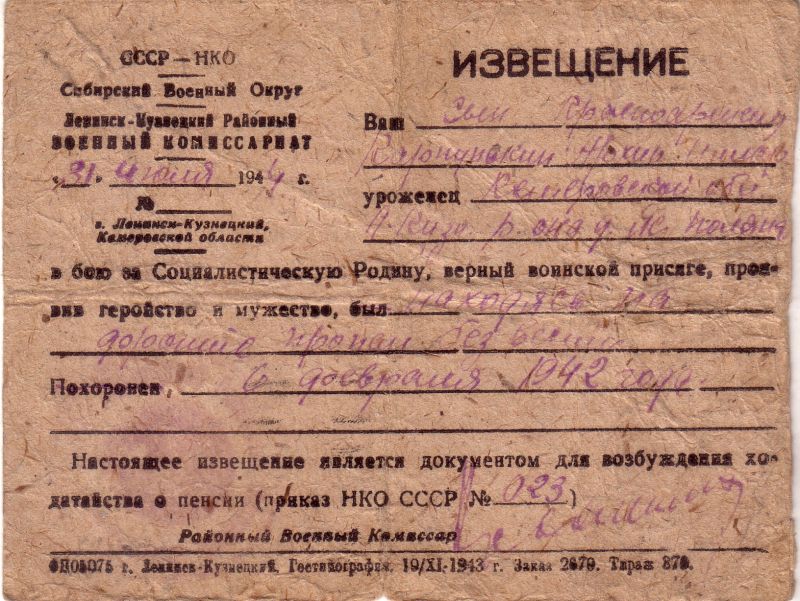 СССР — НКО
Сибирский Военный Округ
Ленинск-Кузнецкий Районный
ВОЕННЫЙ КОМИССАРИАТ
„31“ июля 1944 г.
№
г. Ленинск-Кузнецкий,
Кемеровской области
ИЗВЕЩЕНИЕ
Ваш сын красноармеец
уроженец Кемеровской обл
в бою за Социалистическую Родину, верный воинской присяге, проя-
вив геройство и мужество, был находясь на
фронте пропал без вести
Похоронен 6 февраля 1942 года
Настоящее извещение является документом для возбуждения хо-
датайства о пенсии (приказ НКО СССР № 023)
Районный Военный Комиссар
ФД05075 г. Ленинск-Кузнецкий, Гостипография. 19/XI-1943 г. Заказ 2679. Тираж 870.